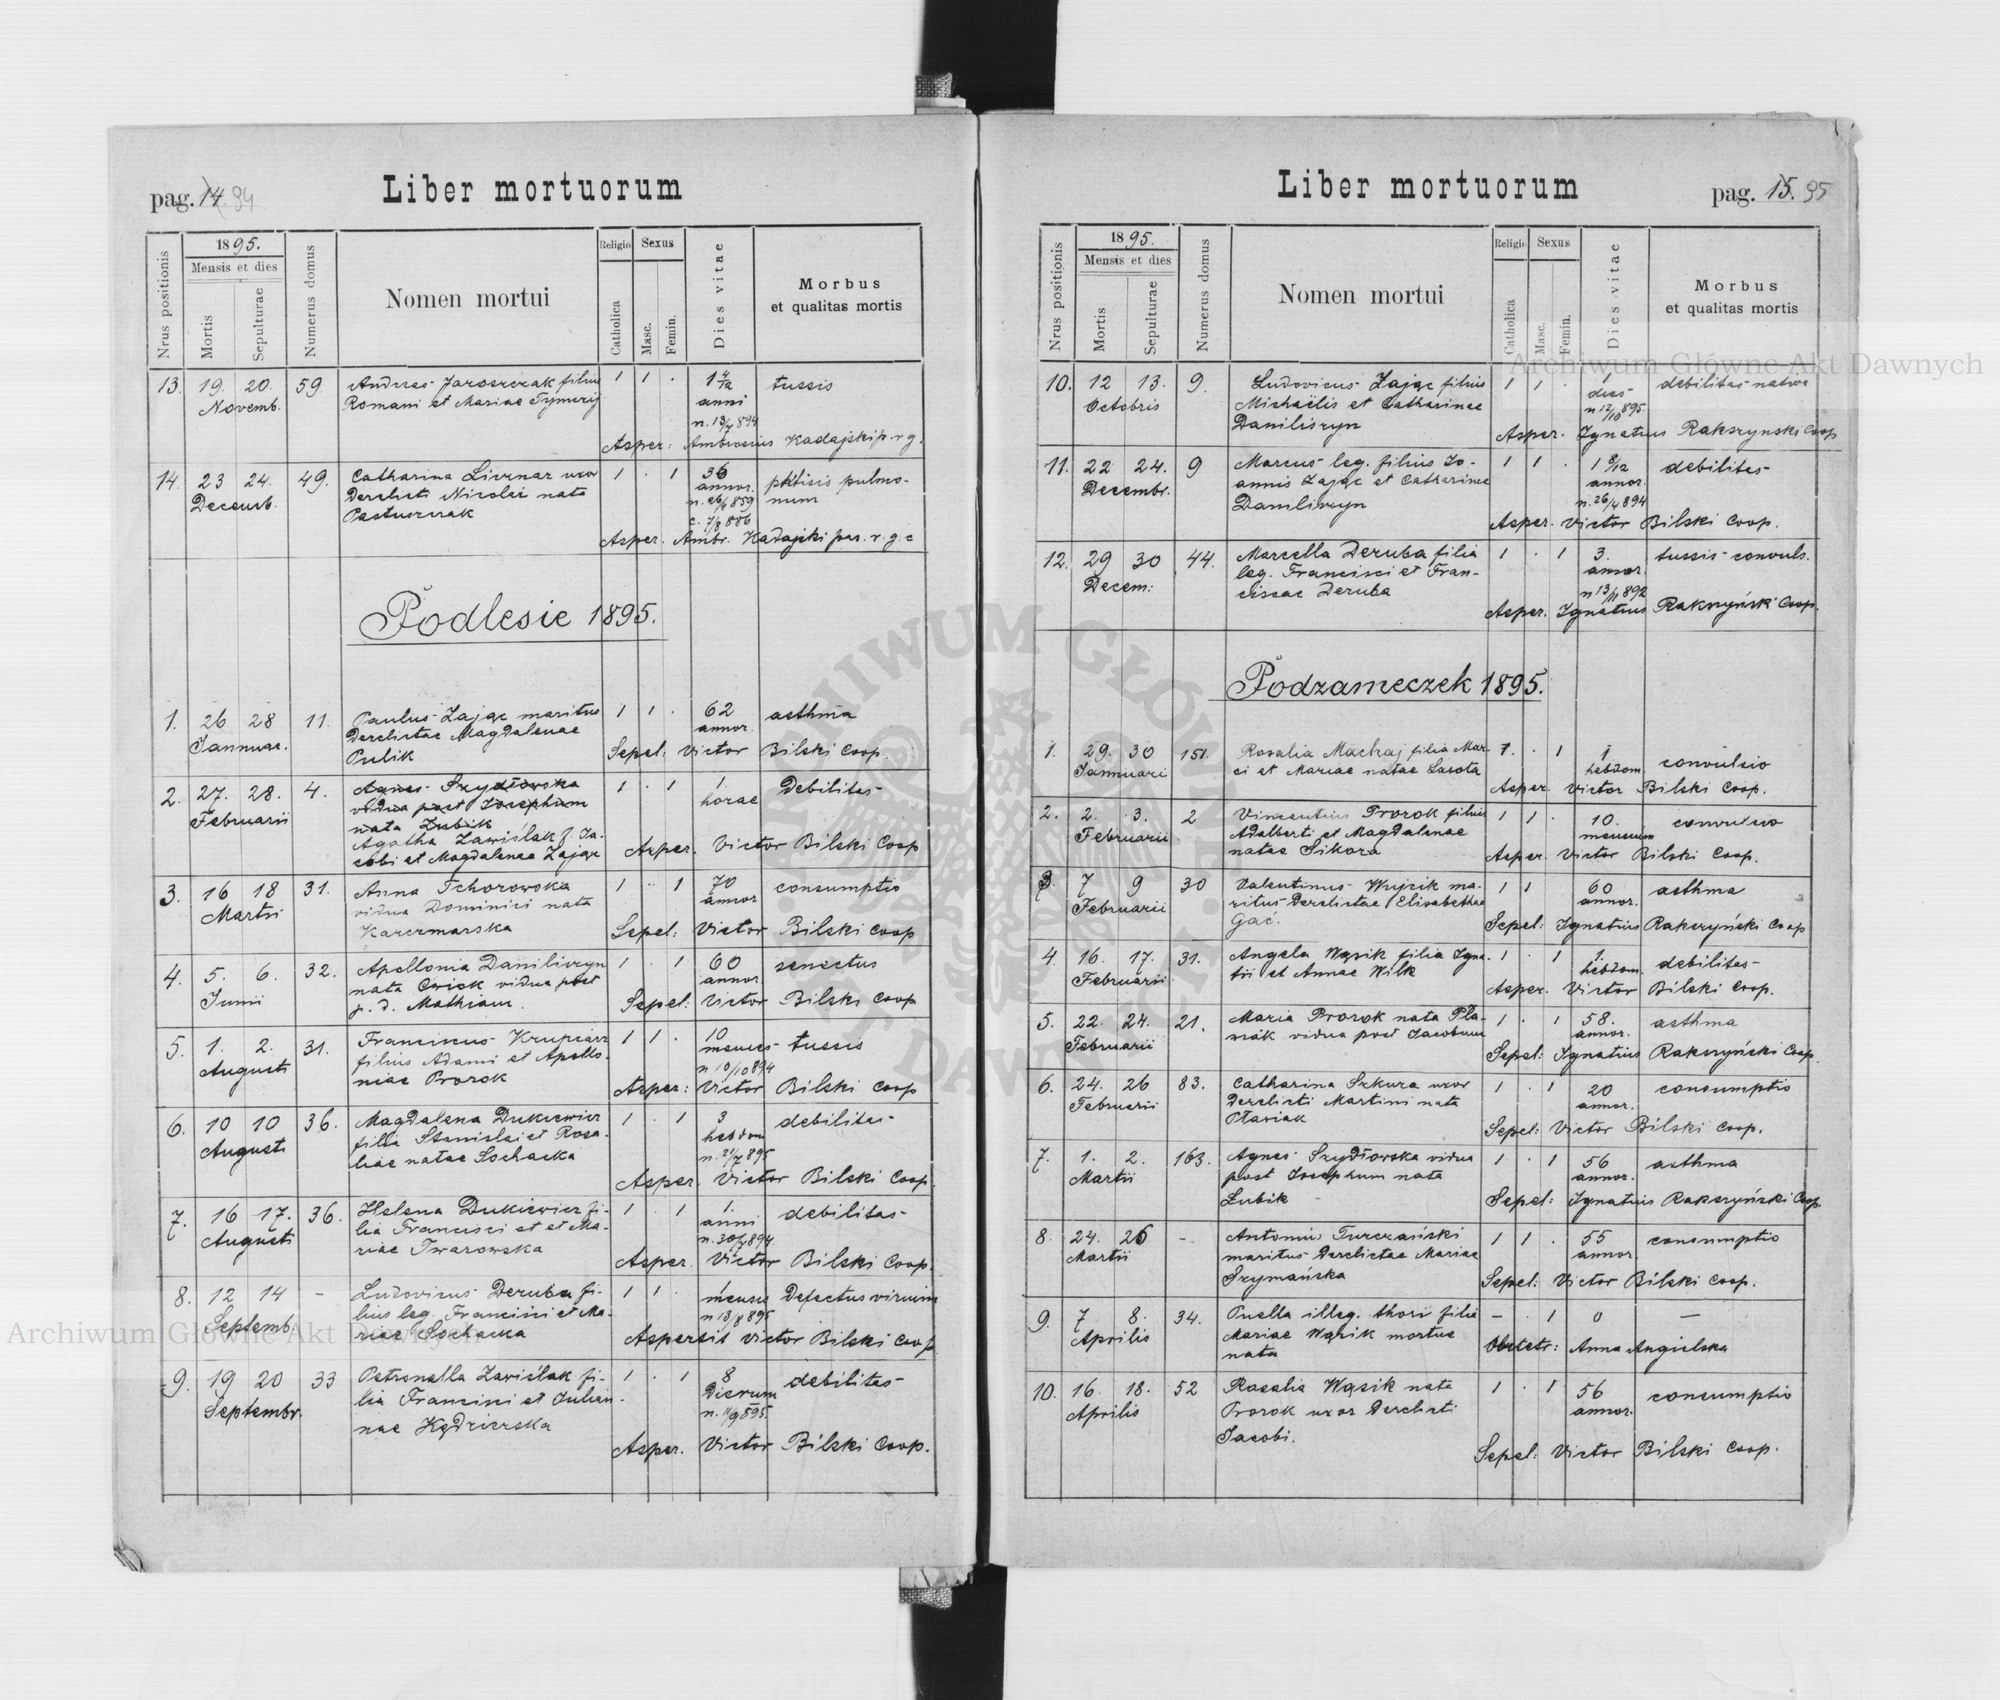 pag. 14. 94
Liber mortuorum
Nrus positionis
1895.
Mensis et dies
Mortis
Sepulturae
Numerus domus
Nomen mortui
Religio
Catholica
Sexus
Masc.
Femin.
Dies vitae
Morbus
et qualitas mortis
13. 19. 20. 59 Andreas Jaroszczak filius 1 1 . 1 4/12 tussis
Novemb. Romani et Mariae Tymczij anni
n. 13/7 894
Asper: Ambrosius Kadajski p. r. g.
14. 23 24. 49. Catharina Liwnar uxor 1 . 1 36 phtisis pulmo-
Decemb. Derelicti Nicolai nata annor. num
Pastuszczak n. 26/4 859
c. 7/8 886
Asper. Ambr. Kadajski par. r. g. c
Podlesie 1895.
1. 26 28 11. Paulus Zając maritus 1 1 . 62 asthma
Januar. Derelictae Magdalenae annor.
Pulik Sepel: Victor Bilski Coop.
2. 27. 28. 4. Agnes Szydłowska 1 . 1 1 Debilitas
Februarii vidua post Josephum horae
nata Zubik
Agatha Zawiślak f. Ja-
cobi et Magdalenae Zając Asper. Victor Bilski Coop
3. 16 18 31. Anna Tchorowska 1 . 1 70 consumptio
Martii vidua Dominici nata annor
Karczmarska Sepel: Victor Bilski Coop
4. 5. 6. 32. Apollonia Daniliwzyn 1 . 1 60 senectus
Junii nata Cwiok vidua post annor.
p. d. Mathiam. Sepel: Victor Bilski Coop
5. 1. 2. 31. Franciscus Krupiarz 1 1 . 10 tussis
Augusti filius Adami et Apollo- menses
niae Prorok n 10/10 894
Asper: Victor Bilski Coop
6. 10 10 36. Magdalena Dukiewicz 1 . 1 3 debilitas
Augusti filia Stanislai et Rosa- hebdom
liae natae Sochacka n. 21/7 895
Asper. Victor Bilski Coop.
7. 16 17. 36. Helena Dukiewicz fi- 1 . 1 1. debilitas
Augusti lia Francisci et et Ma- anni
riae Twarowska n. 30/7 894
Asper. Victor Bilski Coop.
8. 12 14 - Ludovicus Deruba fi- 1 1 . 1 Defectus virium
Septemb. lius leg. Francisci et Ma- mensis
riae Sochacka n 13/8 895
Aspersit Victor Bilski Coop.
9. 19 20 33 Petronella Zawiślak fi- 1 . 1 8 debilitas
Septembr. lia Francisci et Julian- Dierum
nae Kędzierska n. 11/9 895.
Asper. Victor Bilski Coop.
Liber mortuorum
pag. 15. 95
Nrus positionis
1895.
Mensis et dies
Mortis
Sepulturae
Numerus domus
Nomen mortui
Religio
Catholica
Sexus
Masc.
Femin.
Dies vitae
Morbus
et qualitas mortis
10. 12 13. 9. Ludovicus Zając filius 1 1 . 1 debilitas nativa
Octobris Michaëlis et Catharinae dies
Daniliszyn n 12/10 895.
Asper. Ignatius Rakszynski Coop
11. 22 24. 9 Marcus leg. filius Jo- 1 1 . 1 8/12 debilitas
Decembr. annis Zając et Catharinae annor.
Daniliwzyn n. 26/4 894
Asper. Victor Bilski Coop.
12. 29 30 44. Marcella Deruba filia 1 . 1 3. tussis convuls.
Decem: leg. Francisci et Fran- annor.
ciscae Deruba n 13/11 892
Asper. Ignatius Rakszyński Coop.
Podzameczek 1895.
1. 29. 30 151. Rosalia Machaj filia Mar- 1. . 1 1 convulsio
Januarii ci et Mariae natae Lasota hebdom
Asper. Victor Bilski Coop.
2. 2. 3. 2 Vincentius Prorok filius 1 1 . 10. convulsio
Februarii Adalberti et Magdalenae mensium
natae Sikora Asper. Victor Bilski Coop.
3 7 9 30 Valentinus Wujcik ma- 1 1 60 asthma
Februarii ritus Derelictae Elisabethae annor.
Gać. Sepel: Ignatius Rakszyński Coop
4. 16. 17. 31. Angela Wąsik filia Igna- 1 . 1 1. debilitas
Februarii tii et Annae Wilk hebdom.
Asper. Victor Bilski Coop.
5. 22. 24. 21. Maria Prorok nata Pta- 1 . 1 58. asthma
Februarii siak vidua post Jacobum annor.
Sepel: Ignatius Rakszyński Coop.
6. 24. 26 83. Catharina Szkura uxor 1 . 1 20 consumptio
Februarii Derelicti Martini nata annor.
Ptasiak Sepel: Victor Bilski Coop.
7. 1. 2. 163. Agnes Szydłowska vidua 1 . 1 56 asthma
Martii post Josephum nata annor.
Lubik Sepel: Ignatius Rakszyński Coop
8. 24. 26 - Antonius Turczański 1 1 . 55 consumptio
Martii maritus Derelictae Mariae annor.
Szymańska Sepel: Victor Bilski Coop.
9. 7 8. 34. Puella illeg. thori filia - . 1 0 —
Aprilis Mariae Wąsik mortua
nata Obstetr: Anna Angielska
10. 16. 18. 52 Rosalia Wąsik nata 1 . 1 56 consumptio
Aprilis Prorok uxor Derelicti annor.
Jacobi. Sepel: Victor Bilski Coop.
Archiwum Główne Akt Dawnych
Archiwum Główne Akt Dawnych
ARCHIWUM GŁÓWNE AKT DAWNYCH